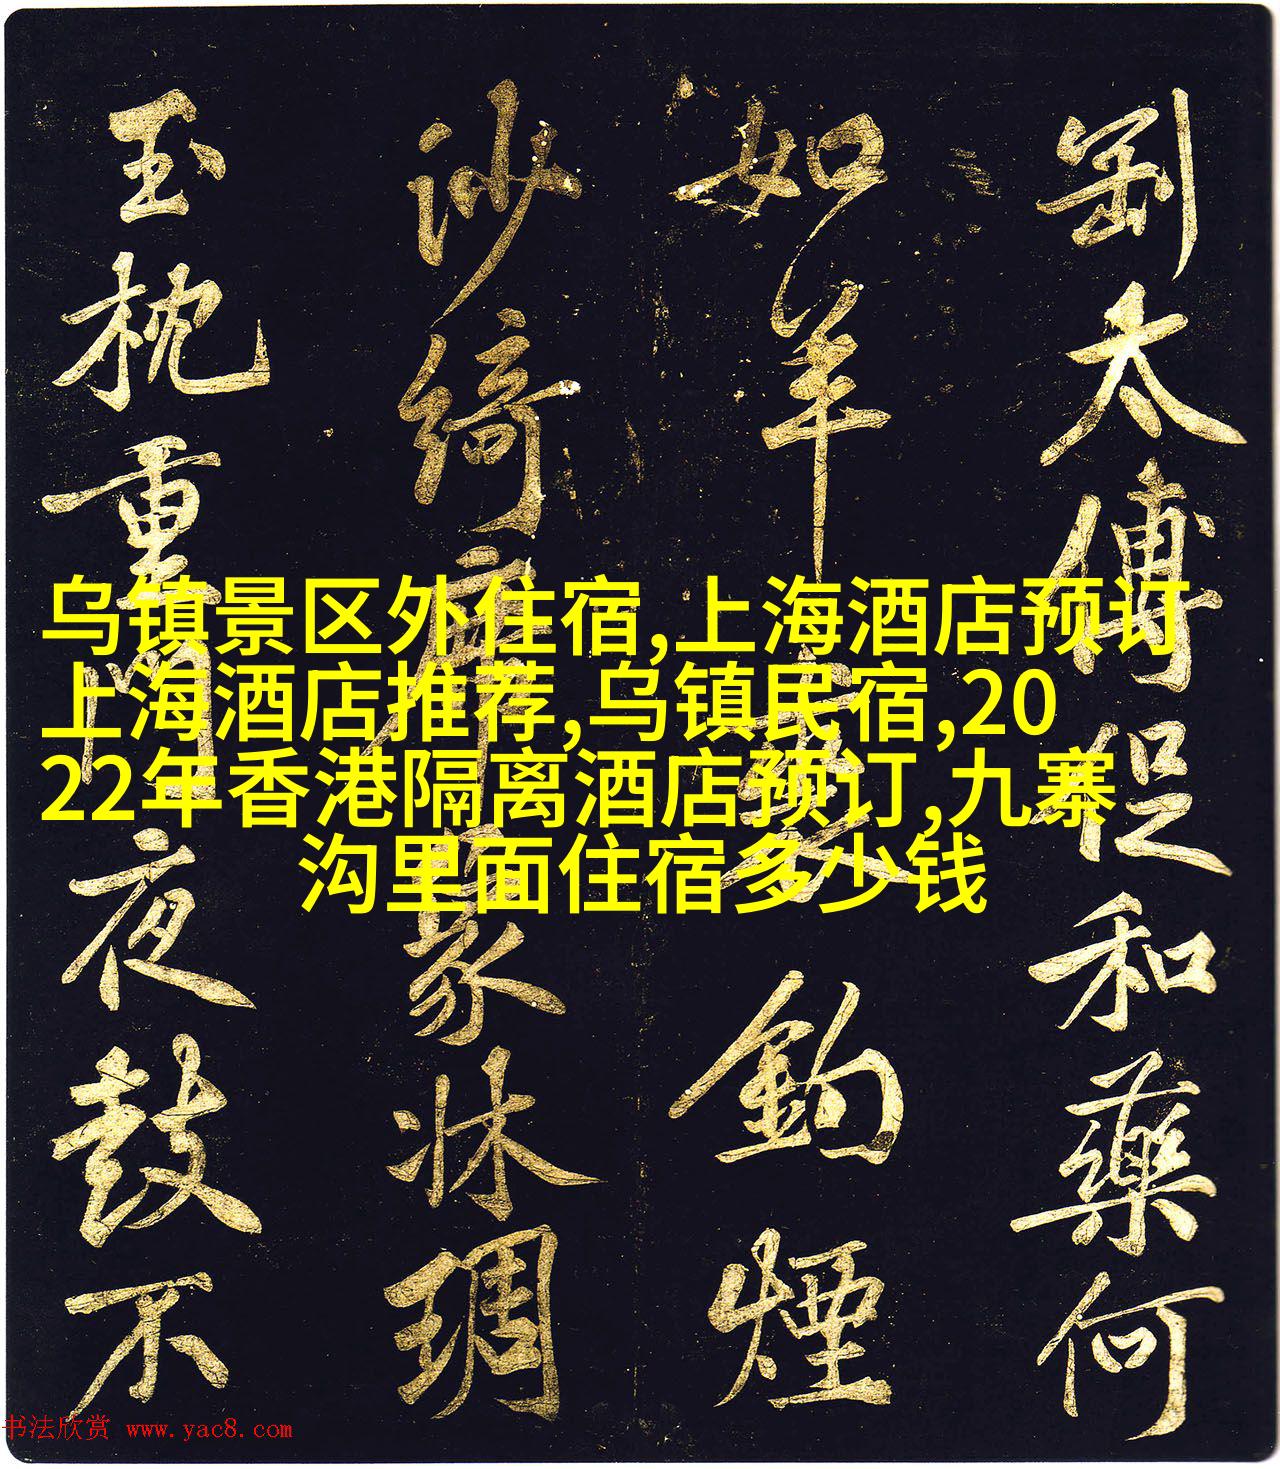 太傅促和藥何
如羊裘鈎煙
沙綺席象牀琱
玉枕重門夜鼓不
乌镇景区外住宿,上海酒店预订
上海酒店推荐,乌镇民宿,20
22年香港隔离酒店预订,九寨
沟里面住宿多少钱
书法欣赏 www.yac8.com